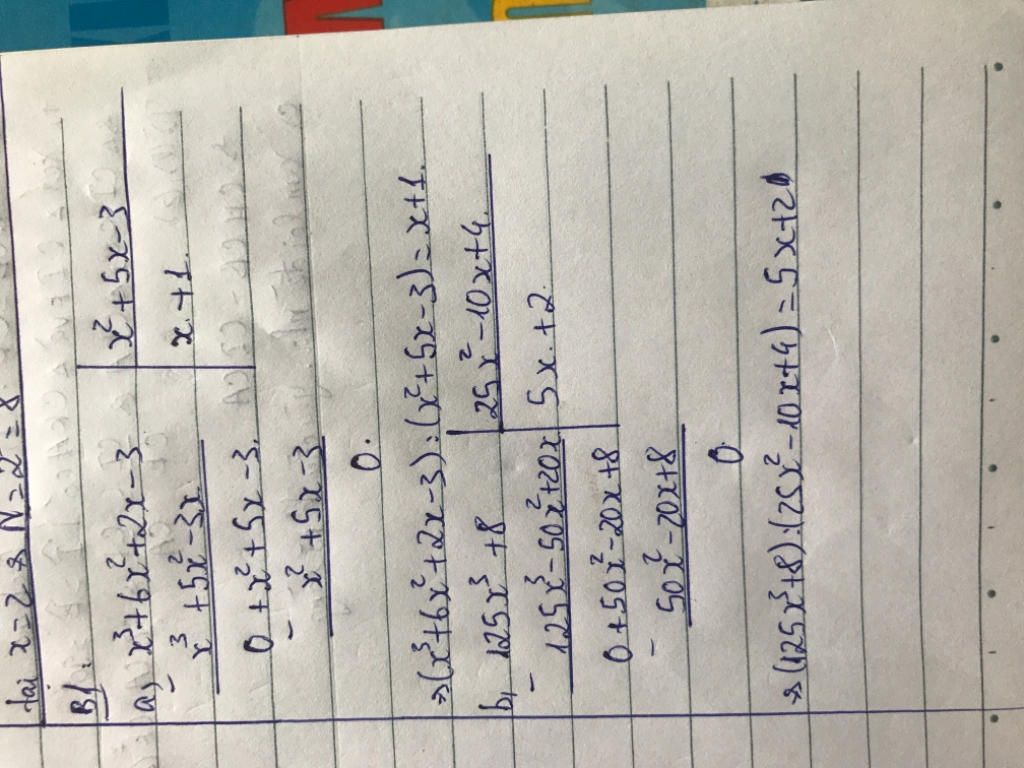 tại x=2 → N=2 = 8
B1
a) x³+6x²+2x-3 | x²+5x-3
- x³+5x²-3x x+1.
0+x²+5x-3.
- x²+5x-3
0.
→ (x³+6x²+2x-3):(x²+5x-3)=x+1.
b, 125x³+8 | 25x²-10x+4.
- 125x³-50x²+20x 5x+2.
0+50x²-20x+8
- 50x²-20x+8
0
→ (125x³+8):(25x²-10x+4)=5x+2